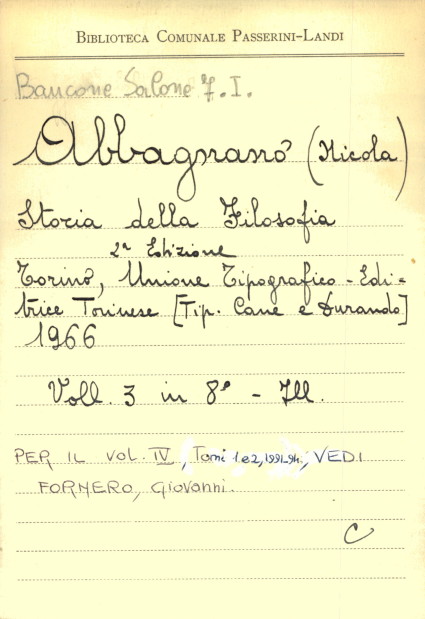 BIBLIOTECA COMUNALE PASSERINI-LANDI
Bancone Salone 7. I.
Abbagnano (Nicola)
Storia della Filosofia
2ª Edizione
Torino, Unione Tipografico-Edi-
trice Torinese [Tip. Cane e Durando]
1966
Voll. 3 in 8º - Ill.
PER IL VOL. IV, Tomi 1 e 2, 1991-94, VEDI
FORNERO, Giovanni.
C